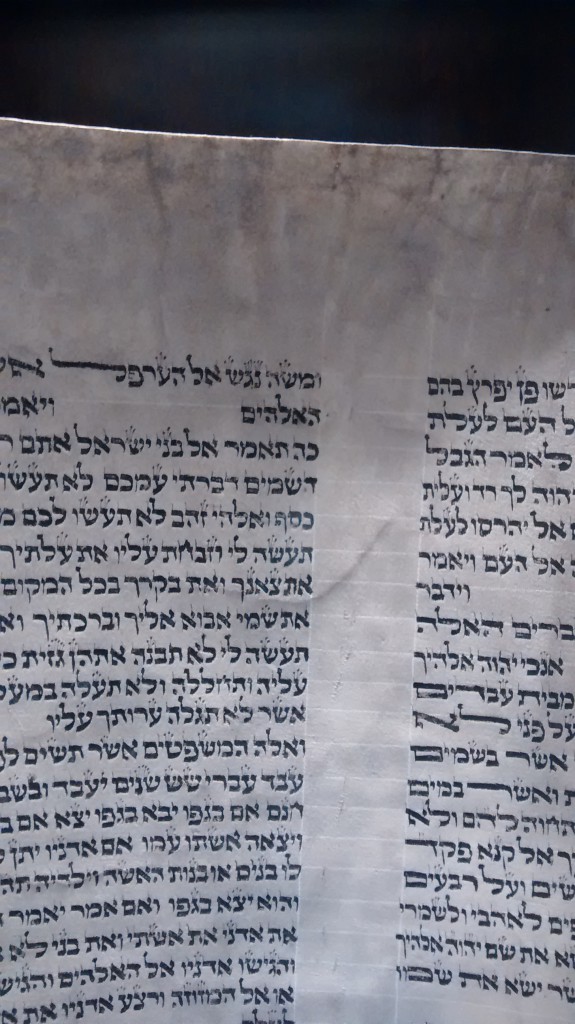 שו פן יפרץ בהם
העם לעלת
לאמר הגבל
יהוה לך רד ועלית
אל יהרסו לעלת
אל העם ויאמר
וידבר
האלה
אנכי יהוה אלהיך
מבית עבדים
על פני לא
אשר בשמים
ואשר במים
להם ולא
אל קנא פקד
ועל רבעים
לאהבי ולשמרי
את שם יהוה אלהיך
ישא את שמו
ומשה נגש אל הערפל
האלהים ויאמר
כה תאמר אל בני ישראל אתם
השמים דברתי עמכם לא תעשו
כסף ואלהי זהב לא תעשו לכם
תעשה לי וזבחת עליו את עלתיך
את צאנך ואת בקרך בכל המקום
את שמי אבוא אליך וברכתיך
תעשה לי לא תבנה אתהן גזית
עליה ותחללה ולא תעלה
אשר לא תגלה ערותך עליו
ואלה המשפטים אשר תשים
עבד עברי שש שנים יעבד
חנם אם בגפו יבא בגפו יצא אם
ויצאה אשתו עמו אם אדניו יתן
לו בנים או בנות האשה וילדיה
והוא יצא בגפו ואם אמר יאמר
את אדני את אשתי ואת בני לא
והגישו אדניו אל האלהים
או אל המזוזה ורצע אדניו את